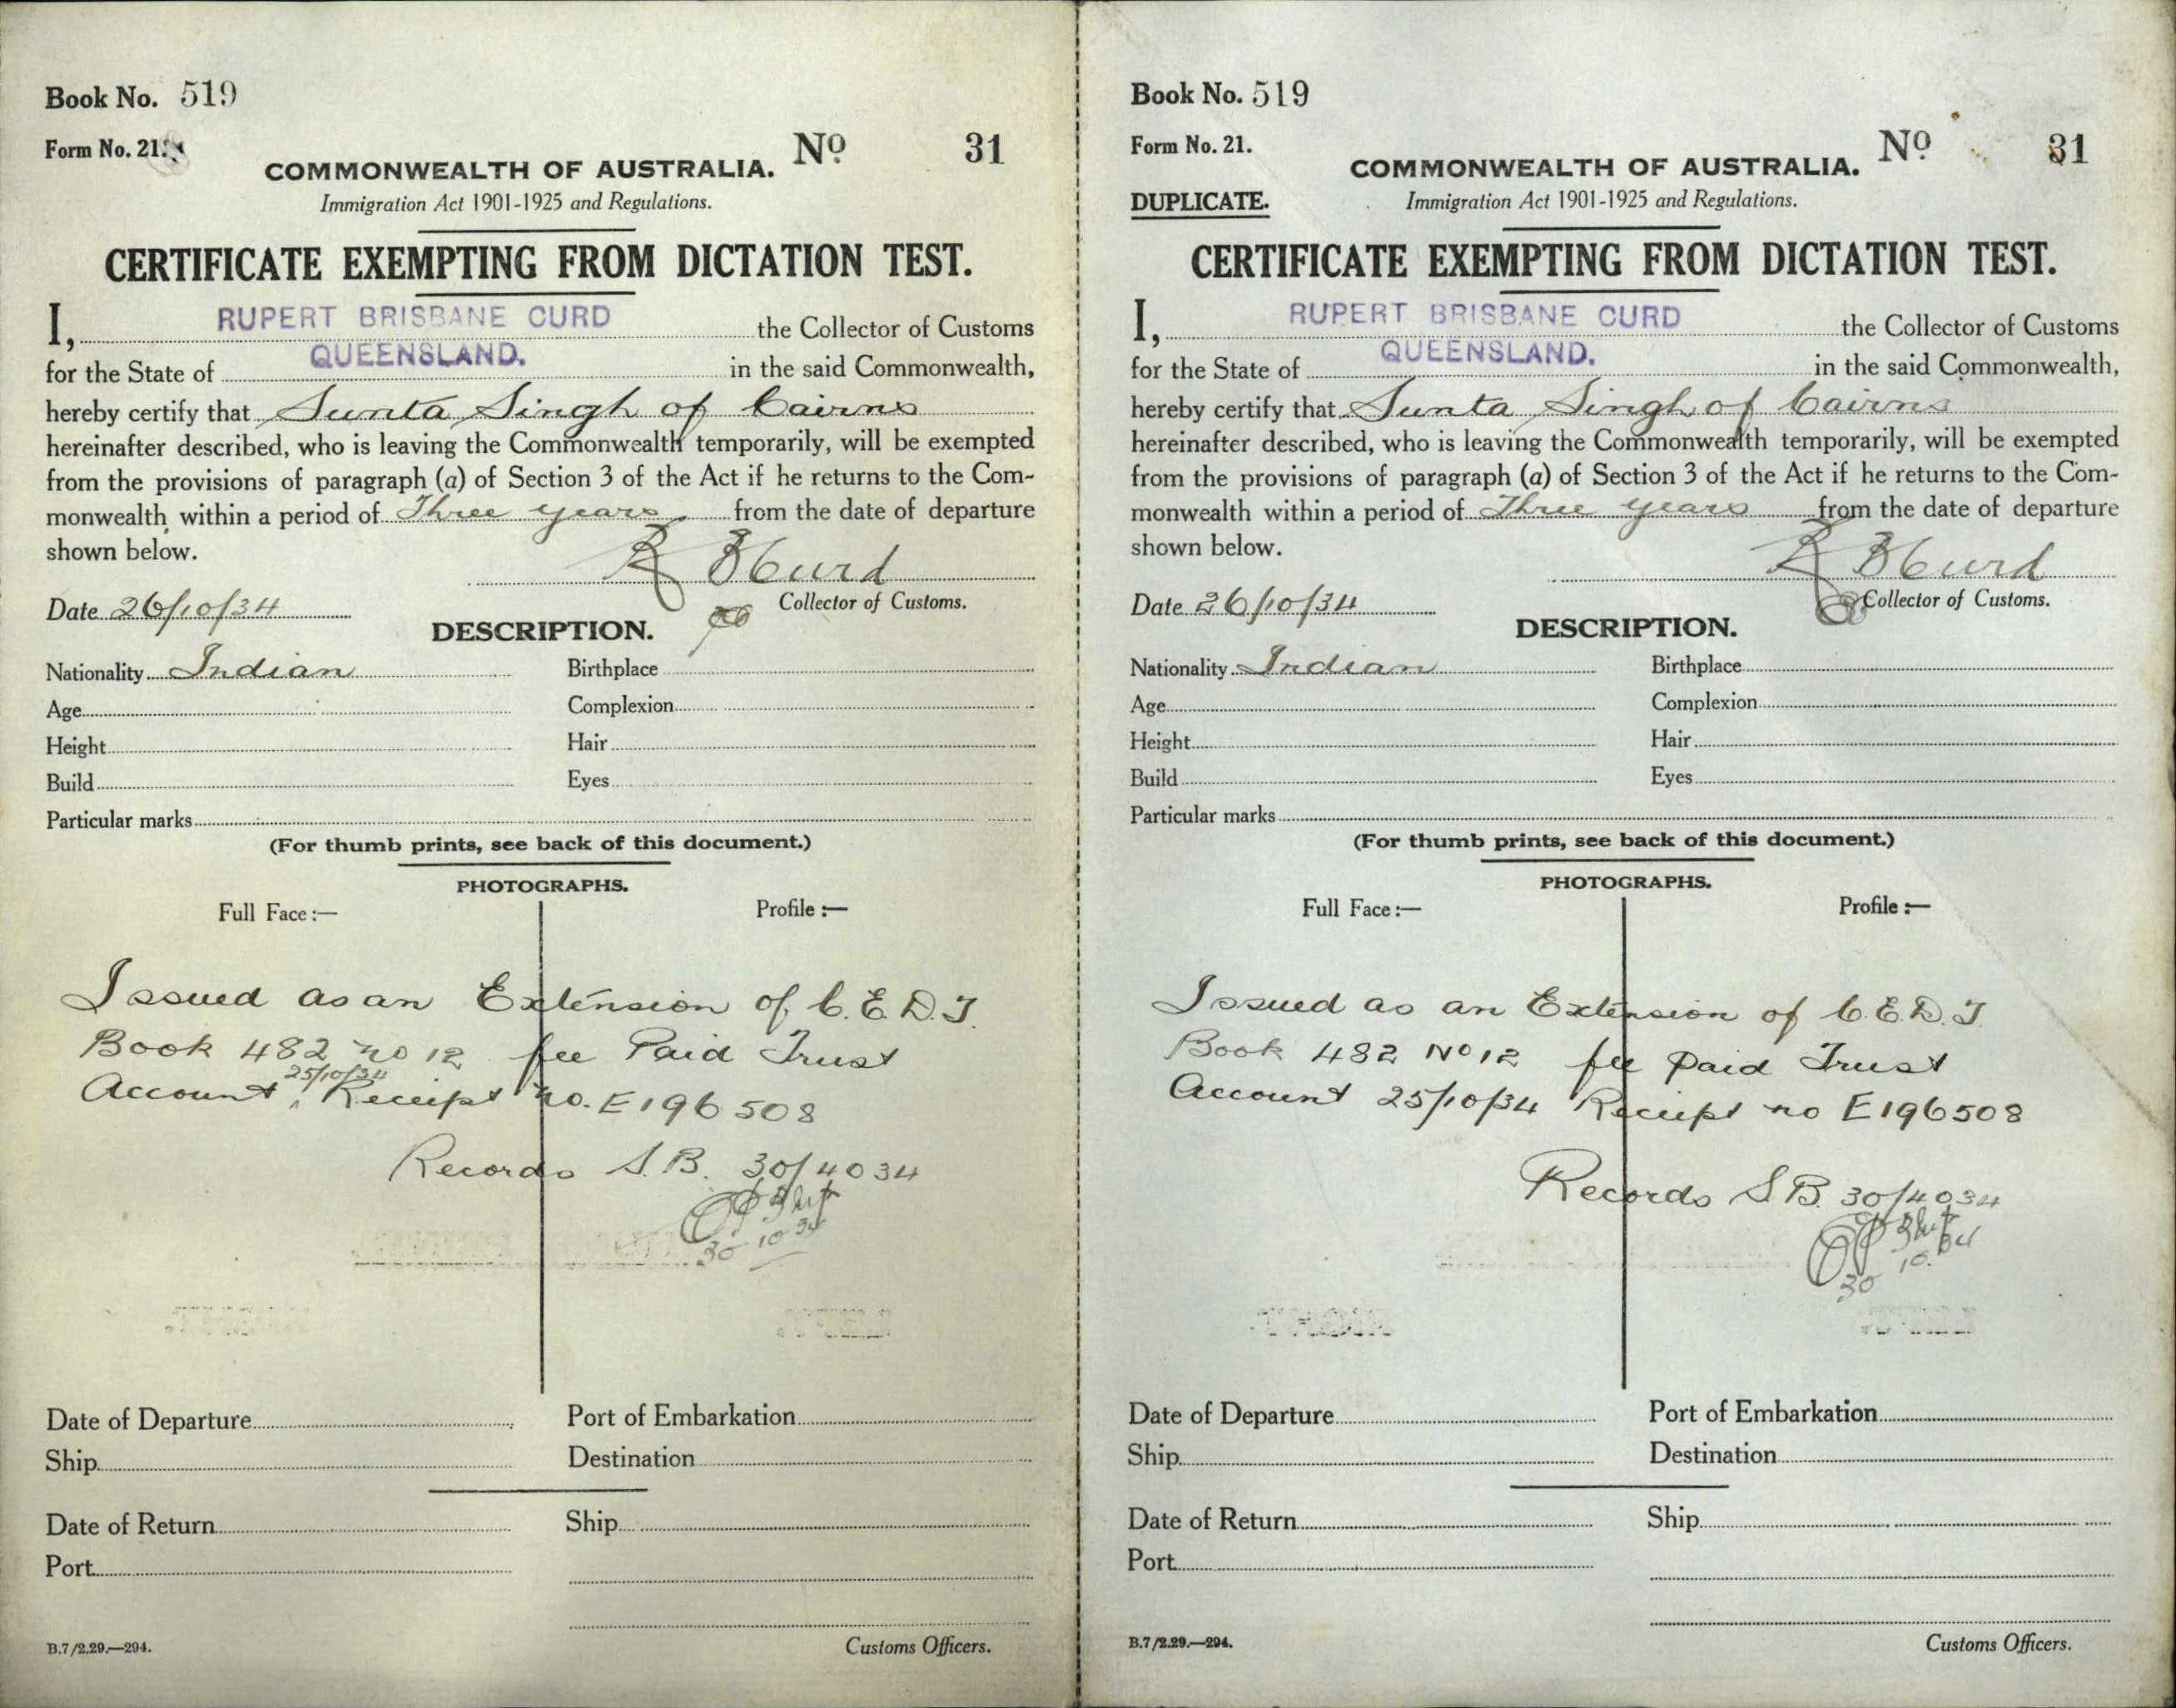 Book No. 519
Form No. 21.
COMMONWEALTH OF AUSTRALIA. No 31
Immigration Act 1901-1925 and Regulations.
CERTIFICATE EXEMPTING FROM DICTATION TEST.
I, RUPERT BRISBANE CURD the Collector of Customs
for the State of QUEENSLAND. in the said Commonwealth,
hereby certify that Sunta Singh of Cairns
hereinafter described, who is leaving the Commonwealth temporarily, will be exempted
from the provisions of paragraph (a) of Section 3 of the Act if he returns to the Com-
monwealth within a period of Three years from the date of departure
shown below.
R B Curd
Date 26/10/34 Collector of Customs.
DESCRIPTION.
Nationality Indian Birthplace
Age Complexion
Height Hair
Build Eyes
Particular marks
(For thumb prints, see back of this document.)
PHOTOGRAPHS.
Full Face:— Profile:—
Issued as an Extension of C.E.D.T.
Book 482 no 12 fee Paid Trust
25/10/34
Account, Receipt no. E196508
Records S.B. 30/4034
30 10 34
Date of Departure Port of Embarkation
Ship Destination
Date of Return Ship
Port
B.7/2.29.—294. Customs Officers.
Book No. 519
Form No. 21.
COMMONWEALTH OF AUSTRALIA. No 31
DUPLICATE. Immigration Act 1901-1925 and Regulations.
CERTIFICATE EXEMPTING FROM DICTATION TEST.
I, RUPERT BRISBANE CURD the Collector of Customs
for the State of QUEENSLAND. in the said Commonwealth,
hereby certify that Sunta Singh of Cairns
hereinafter described, who is leaving the Commonwealth temporarily, will be exempted
from the provisions of paragraph (a) of Section 3 of the Act if he returns to the Com-
monwealth within a period of Three years from the date of departure
shown below.
R B Curd
Date 26/10/34 Collector of Customs.
DESCRIPTION.
Nationality Indian Birthplace
Age Complexion
Height Hair
Build Eyes
Particular marks
(For thumb prints, see back of this document.)
PHOTOGRAPHS.
Full Face:— Profile:—
Issued as an Extension of C.E.D.T.
Book 482 No 12 fee paid Trust
Account 25/10/34 Receipt no E196508
Records S.B. 30/4034
30 10.34
Date of Departure Port of Embarkation
Ship Destination
Date of Return Ship
Port
B.7/2.29.—294. Customs Officers.